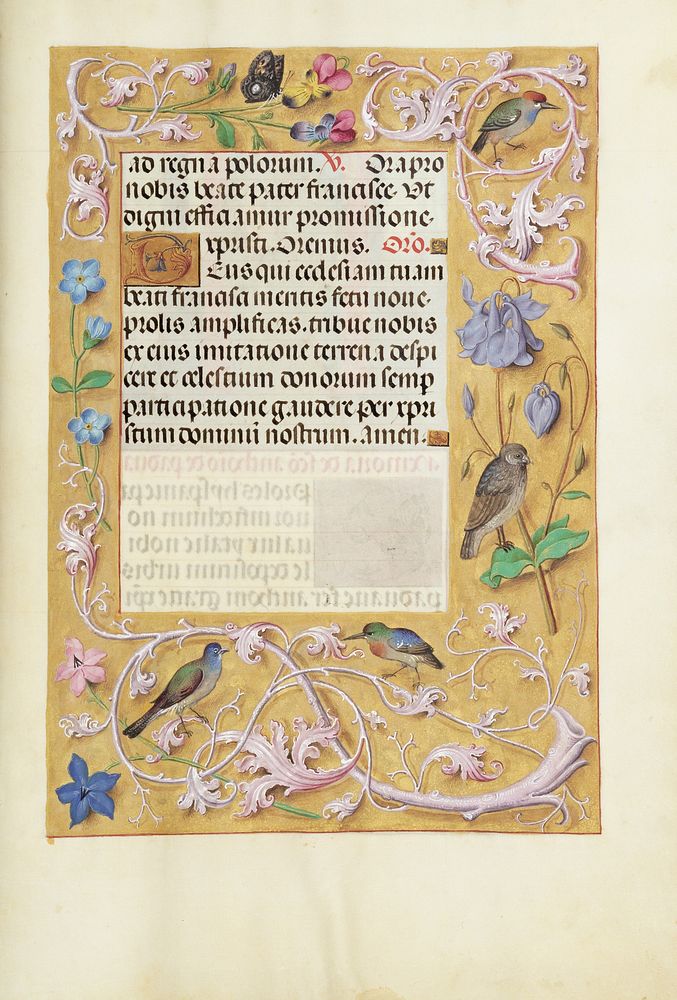 ad regna polorum. V. Ora pro
nobis beate pater francisce. Ut
digni efficiamur promissione
xpristi. Oremus. Oro.
Deus qui ecclesiam tuam
beati francisci meritis fetu noue
prolis amplificas. tribue nobis
ex eius imitatione terrena despi
cere et celestium donorum semp
participatione gaudere per xpri
stum dominum nostrum. amen.